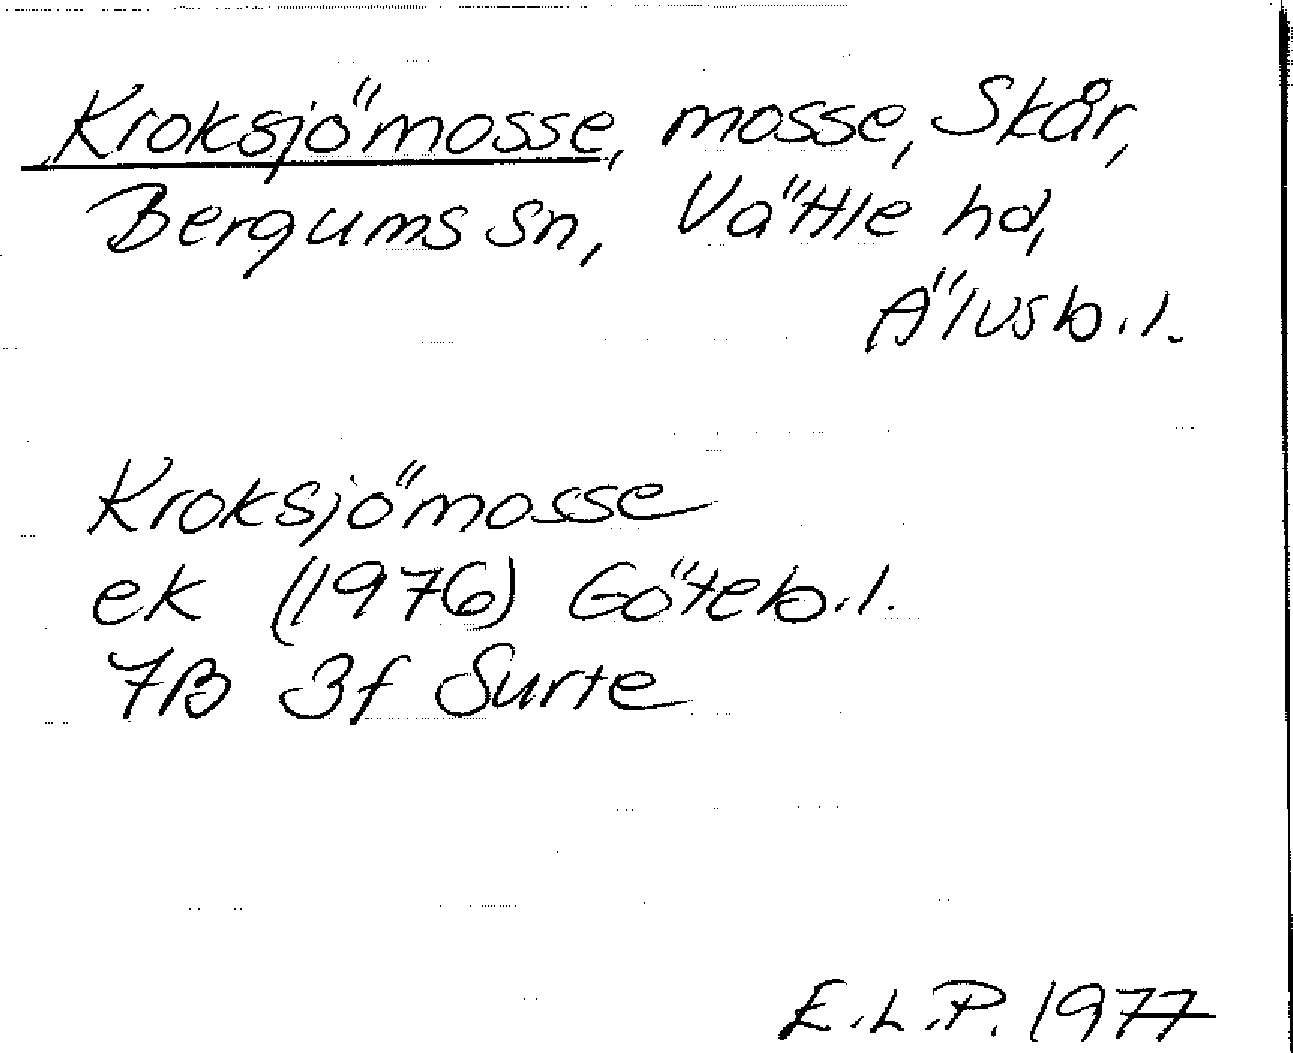 Kroksjömosse, mosse, Skår,
Bergums sn, Vättle hd,
Älvsb.l.
Kroksjömosse
ek (1976) Göteb.l.
7B 3f Surte
E.L.P. 1977